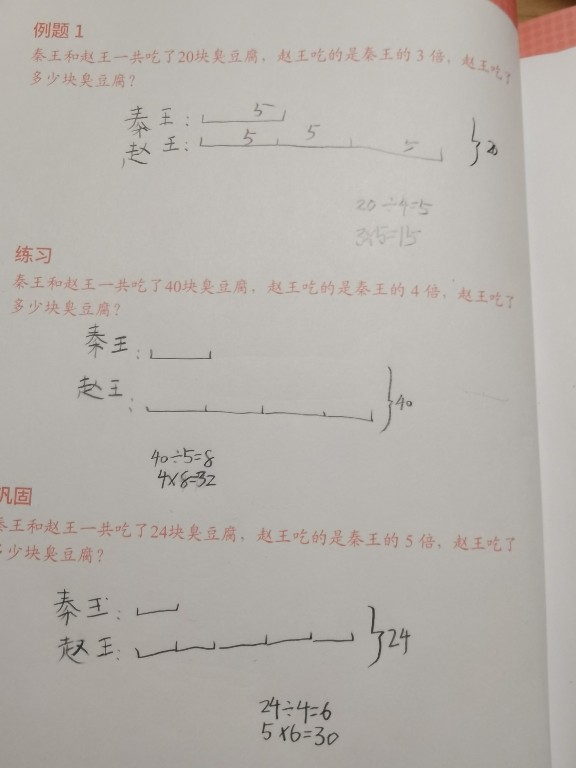 例题 1
秦王和赵王一共吃了20块臭豆腐，赵王吃的是秦王的 3 倍，赵王吃了
多少块臭豆腐？
秦王： 5
赵王： 5 5 5
20
20÷4=5
3×5=15
练习
秦王和赵王一共吃了40块臭豆腐，赵王吃的是秦王的 4 倍，赵王吃了
多少块臭豆腐？
秦王：
赵王：
40
40÷5=8
4×8=32
巩固
秦王和赵王一共吃了24块臭豆腐，赵王吃的是秦王的 5 倍，赵王吃了
多少块臭豆腐？
秦王：
赵王：
24
24÷4=6
5×6=30